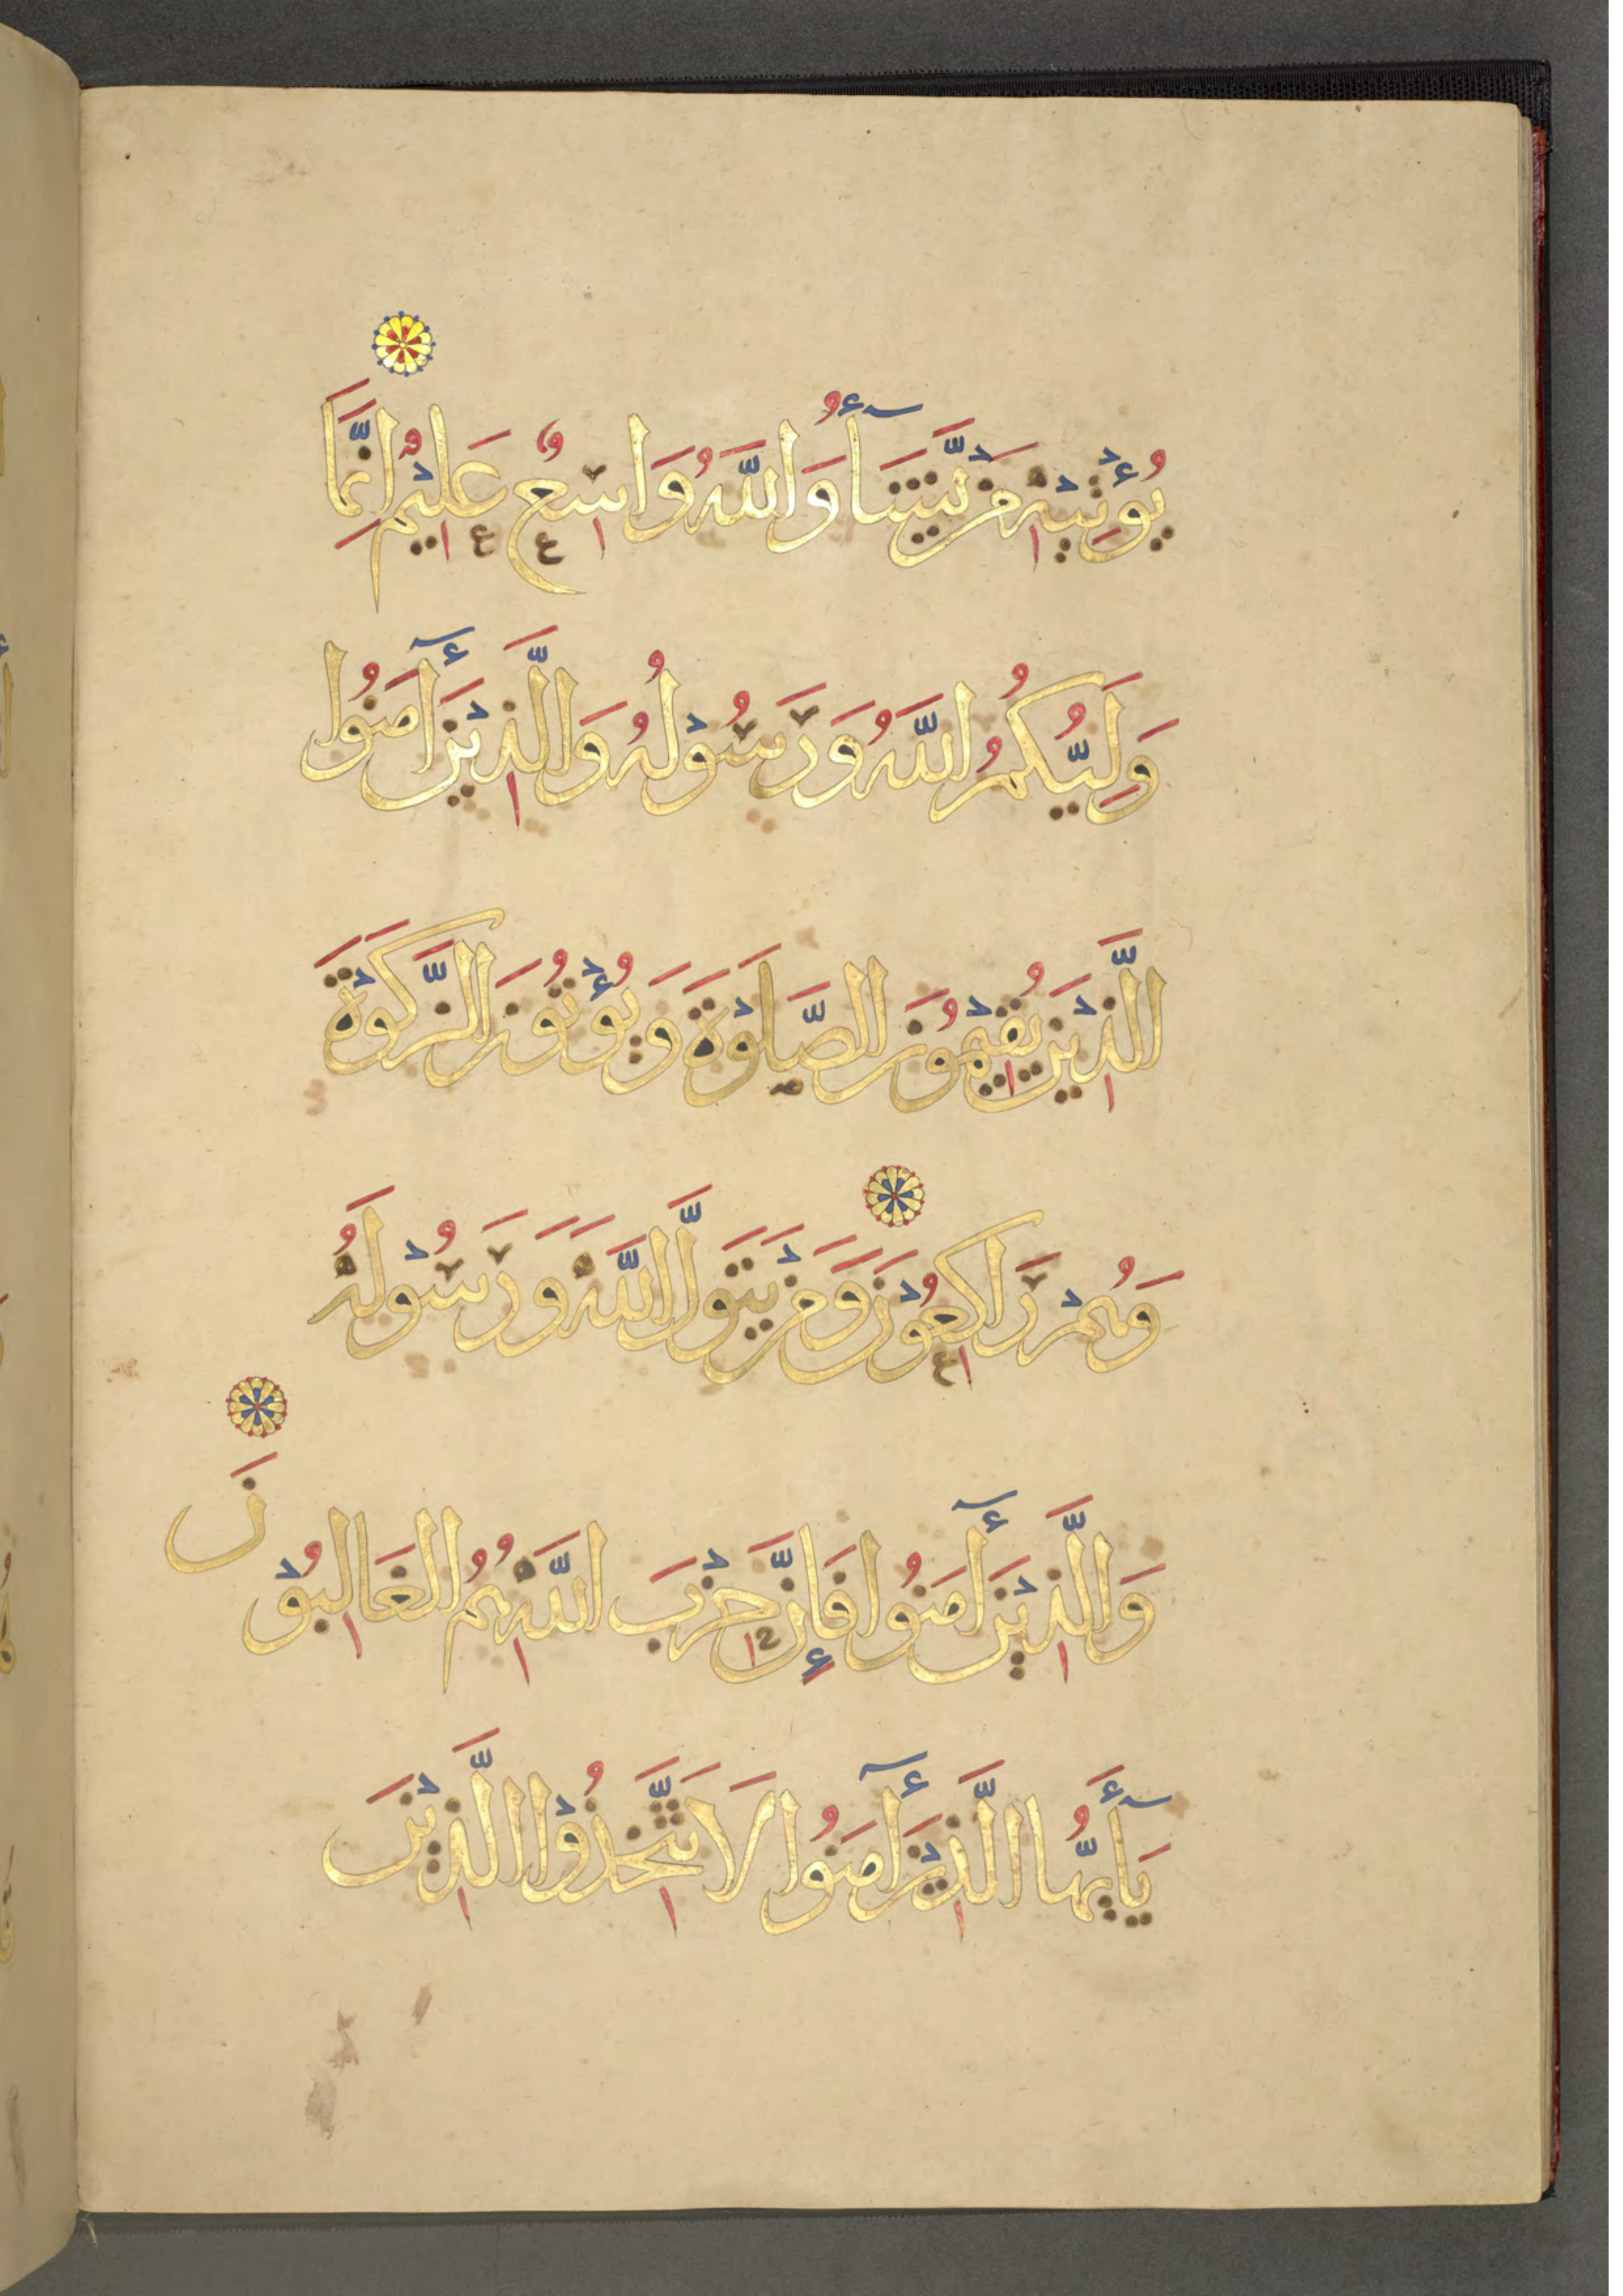 يُؤْتِيْهِ مَنْ يَّشَآءُ وَاللَّهُ وَاسِعٌ عَلِيْمٌ اِنَّمَا
وَلِيُّكُمُ اللَّهُ وَرَسُوْلُهُ وَالَّذِيْنَ أٓمَنُوا
الَّذِيْنَ يُقِيْمُوْنَ الصَّلَوٰةَ وَيُؤْتُوْنَ الزَّكَوٰةَ
وَهُمْ رَاكِعُوْنَ وَمَنْ يَتَوَلَّ اللَّهَ وَرَسُوْلَهُ
وَالَّذِيْنَ أٓمَنُوا فَإِنَّ حِزْبَ اللَّهِ هُمُ الْغَالِبُوْنَ
يَأٓيُّهَا الَّذِيْنَ أٓمَنُوا لَا تَتَّخِذُوْا الَّذِيْنَ